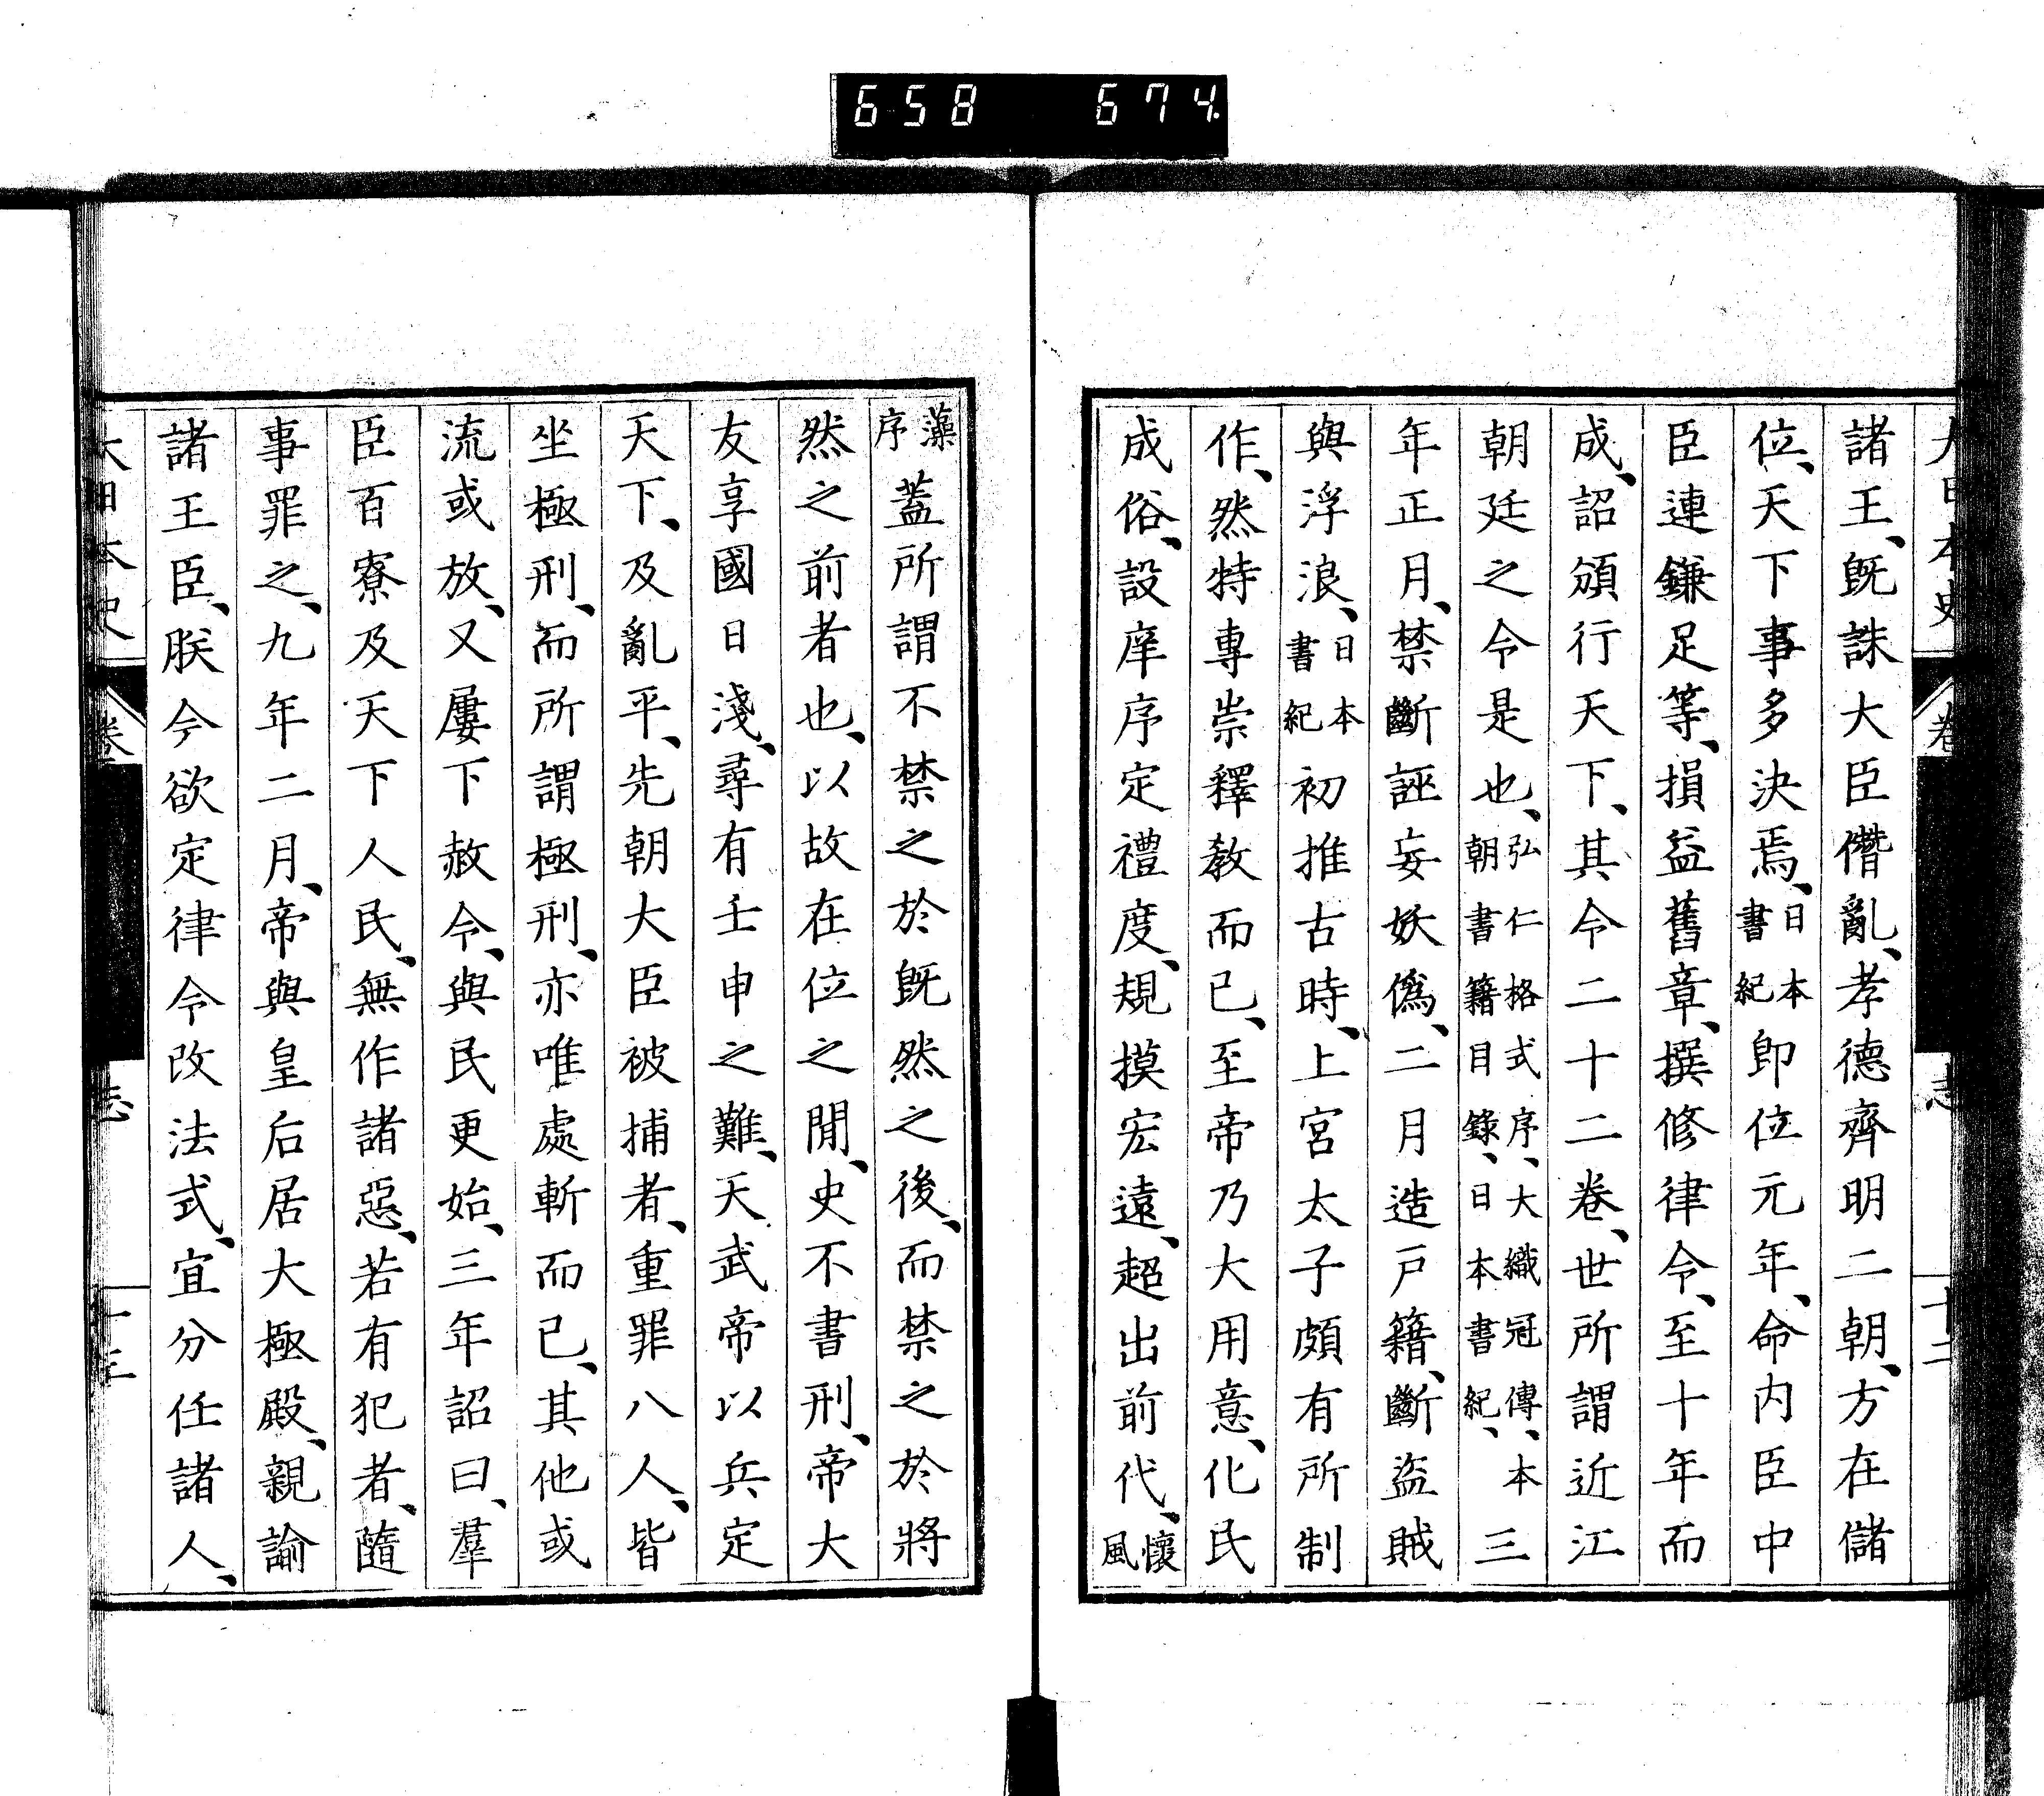 658 674.
諸王、既誅大臣僭亂、孝德齊明二朝、方在儲
位、天下事多決焉、日本書紀即位元年、命内臣中
臣連鎌足等、損益舊章、撰修律令、至十年而
成、詔頒行天下、其令二十二卷、世所謂近江
朝廷之令是也、弘仁格式序、大織冠傳、本朝書籍目錄、日本書紀、三
年正月、禁斷誣妄妖僞、二月造戸籍、斷盜賊
與浮浪、日本書紀初推古時、上宮太子頗有所制
作、然特專崇釋教而已、至帝乃大用意、化民
成俗、設庠序定禮度、規摸宏遠、超出前代、懷風
藻序蓋所謂不禁之於既然之後、而禁之於將
然之前者也、以故在位之間、史不書刑、帝大
友享國日淺、尋有壬申之難、天武帝以兵定
天下、及亂平、先朝大臣被捕者、重罪八人、皆
坐極刑、而所謂極刑、亦唯處斬而已、其他或
流或放、又屢下赦令、與民更始、三年詔曰、羣
臣百寮及天下人民、無作諸惡、若有犯者、隨
事罪之、九年二月、帝與皇后居大極殿、親諭
諸王臣、朕今欲定律令改法式、宜分任諸人、
大日本史 卷 志